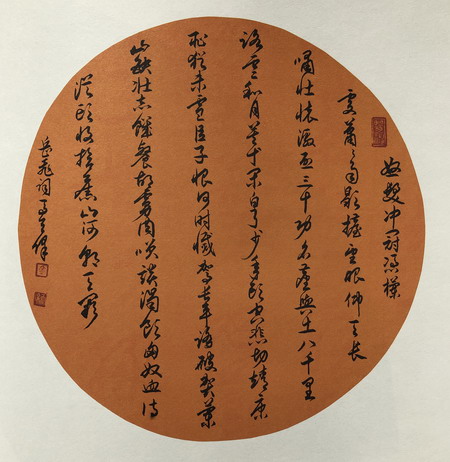 怒髮冲冠凭欄
處蕭蕭雨歇抬望眼仰天長
嘯壯懷激烈三十功名塵與土八千里
路雲和月莫等閑白了少年頭空悲切靖康
恥猶未雪臣子恨何時滅駕長車踏破賀蘭
山缺壯志饑餐胡虜肉笑談渴飲匈奴血待
從頭收拾舊山河朝天闕
岳飛詞